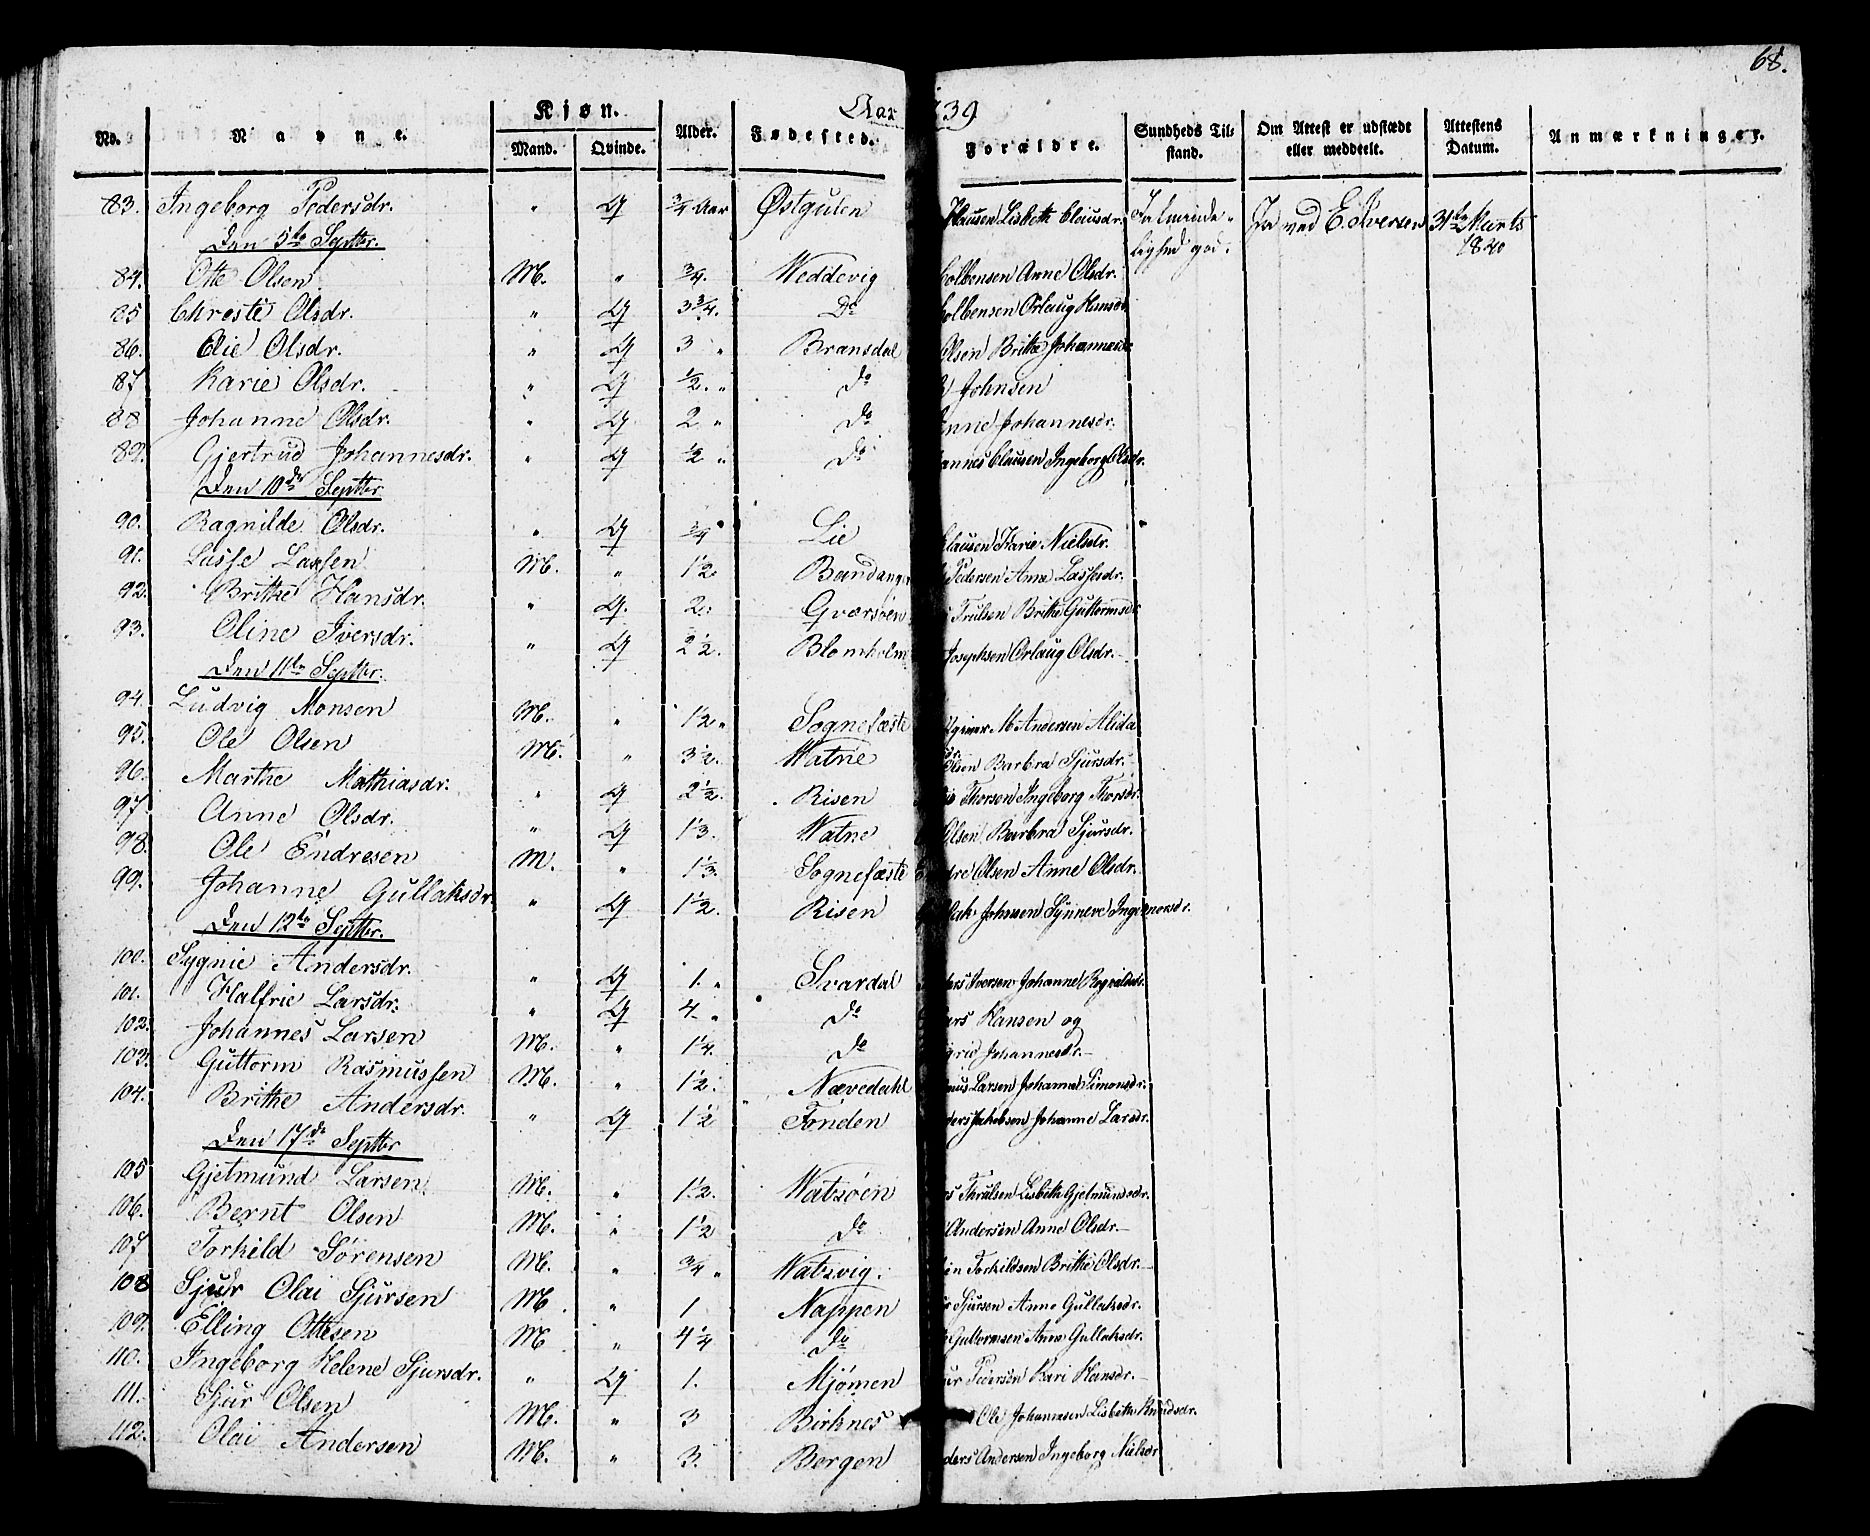 68.
Aar 39
No. Navne. Kjøn. Mand. Qvinde. Alder. Fødested. Forældre. Sundheds Til- stand. Om Attest er udstædt eller meddeelt. Attestens Datum. Anmærkninger.
83. Ingeborg Pedersdr. " Q 3/4 Aar Østgulen Clausen Lisbeth Clausdr. Ja ved E. Iversen 31te Marts 1840
Den 5te Septbr. lighed god.
84. Otte Olsen M. " 3/4. Weddevig Colbensen Anne Olsdr.
85 Christe Olsdr. " Q 3 3/4. Do Colbensen Orlaug Hansdr
86. Elie Olsdr. " Q 3 " Bransdal Olsen Brithe Johannesdr
87 Karie Olsdr. " Q 1/2. " do Johnsen
88 Johanne Olsdr. " Q 2 " do Anne Johannesdr.
89. Gjertrud Johannesdr. " Q 1/2 " do annes Clausen Ingeborg Olsdr.
Den 10de Septbr
90. Ragnilde Olsdr. " Q 3/4 Lie Clausen Karie Nielsdr.
91. Lasse Lassen M. " 1/2 Bandanger Pedersen Anne Lassesdr.
92. Brithe Hansdr. " Q. 2. Qværsøen Trulsen Brithe Guttormsdr
93. Oline Iversdr. " Q 2 1/2. Blomholm Josephsen Orlaug Olsdr.
Den 11te Septbr.
94. Ludvig Monsen M. " 1/2 " Sognefæste M. Andersen Alida
95. Ole Olsen M. " 3 1/2. Watne Olsen Barbra Sjursdr.
96. Marthe Mathiasdr. " Q 2 1/2. Risen Thorsen Ingeborg Thorsdr.
97. Anne Olsdr. " Q 1/3. Watne Olsen Barbra Sjursdr.
98. Ole Endresen M. " 1/3. Sognefæste dre Olsen Anne Olsdr.
99. Johanne Gullaksdr. " Q 1/2. Risen lak Johnsen Synneve Ingemorsdr.
Den 12te Septbr.
100. Sygnie Andersdr. " Q 1. " Svardal ders Iversen Johanne Rognaldsdr.
101. Halfrie Larsdr. " Q 4. " do ars Hansen og
102. Johannes Larsen M. " 1/4. do grid Johannesdr.
103. Guttorm Rasmussen M. " 1/2. Nævedahl mus Larsen Johanne Simonsdr.
104. Brithe Andersdr. " Q 1/2 Tønden ders Jakobsen Johanne Larsdr.
Den 17de Septbr
105 Gjetmund Larsen M. " 1/2. Watsøen rs Thrulsen Lisbeth Gjetmundsdr.
106. Bernt Olsen M. " 1/2 do Andersen Anne Olsdr.
107 Torkild Sørensen M. " 3/4 " Watsvig. en Torkildsen Brithe Olsdr.
108 Sjur Olai Sjursen M " 1 Nappen ur Sjursen Anne Gullaksdr.
109. Elling Ottesen M " 4 1/4 do Guttormsen Anne Gullaksdr.
110. Ingeborg Helene Sjursdr. " Q 1. Mjømen ur Pedersen Kari Hansdr.
111. Sjur Olsen M. " 3 Birknes Ole Johannesen Lisbeth Knudsdr.
112. Olai Andersen M. " 3. Bergen ders Andersen Ingeborg Nielsdr